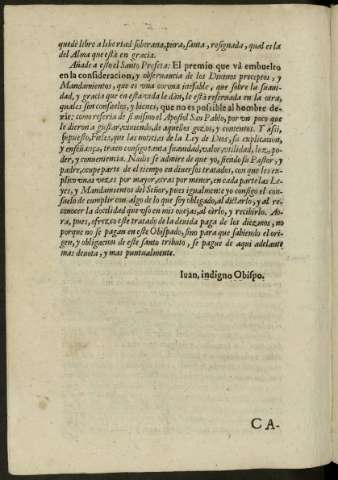 quede lebre a lebertad soberana, pura, santa, resignada, qual es la
del Alma que està en gracia.
Añade a esto el Santo Profeta: El premio que và embuelto
en la consideracion, y observancia de los Divinos preceptos, y
Mandamientos, que es una corona inefable, que sobre la suavi-
dad, y gracia que en esta vida le dàn, le està reservada en la otra,
quales son consuelos, y bienes, que no es possible al hombre de-
zir: como referia de si mismo el Apostol San Pablo, por un poco que
le dieron a gustar, viendo, de aquellos gozos, y contentos. Y assi,
supuesto, Fieles, que las noticias de la Ley de Dios, su explicacion,
y enseñança, traen consigo tanta suavidad, valor, utilidad, luz, po-
der, y conveniencia. Nadie se admire de que yo, siendo su Pastor, y
padre, ocupe parte de el tiempo en diversos tratados, con que les ex-
plico unas vezes por mayor, otras por menor, en cada parte las Le-
yes, y Mandamientos del Señor, pues igualmente yo consigo el con-
suelo de cumplir con algo de lo que soy obligado, al dictarlo, y al re-
conocer la docilidad que veo en mis ovejas, al oirlo, y recibirlo. Ao-
ra, pues, ofrezco este tratado de la devida paga de los diezmos, no
porque no se pagan en este Obispado, sino para que sabiendo el ori-
gen, y obligacion de este santo tributo, se pague de aqui adelante
mas devota, y mas puntualmente.
Iuan, indigno Obispo.
CA-